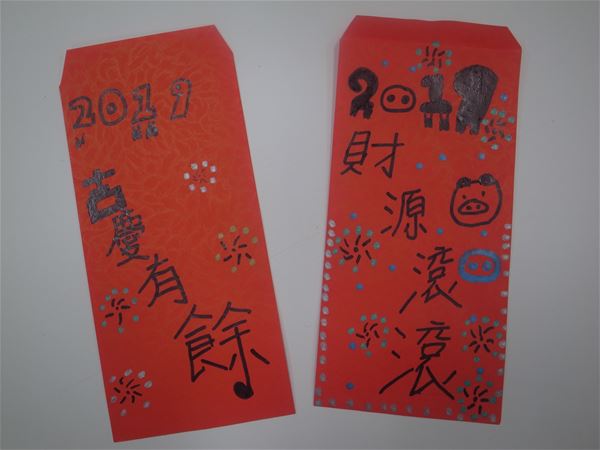 2019
吉慶有餘
2019
財源滾滾